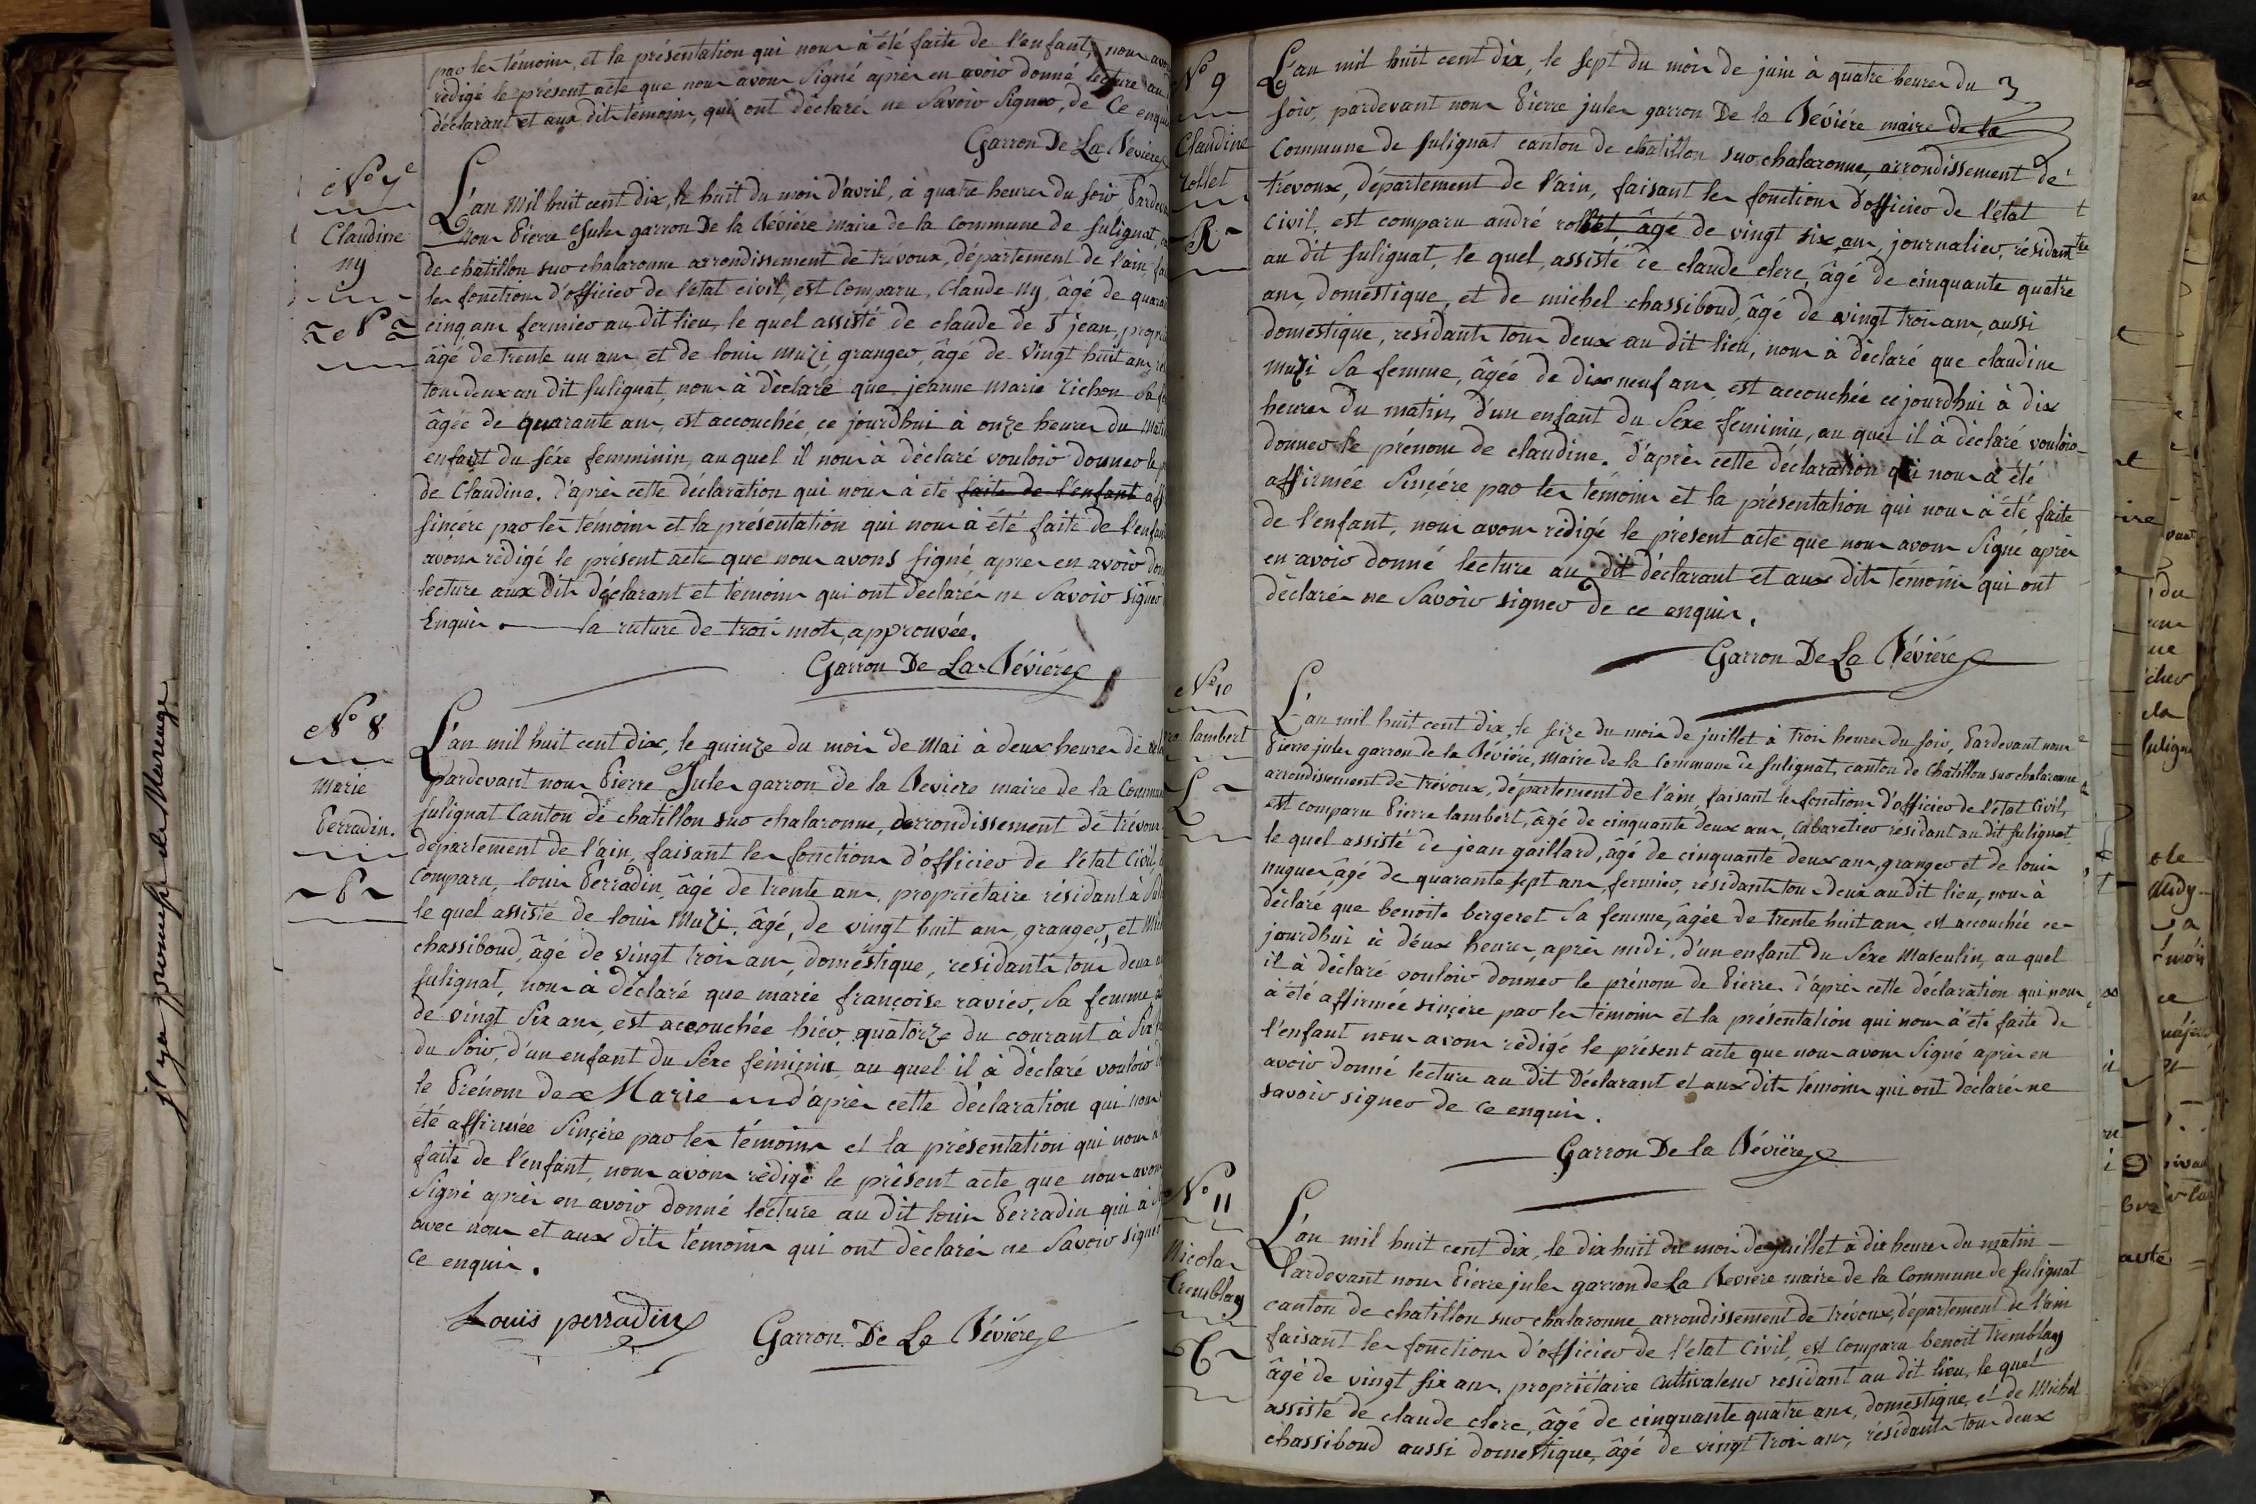 par les témoins, et la présentation qui nous à été faite de l'enfant, nous avo
rédigé le présent acte que nous avons signé après en avoir donné lecture au
déclarant et aux dits témoins, qui ont déclaré ne savoir signer, de ce enqui
Garron De La Bévière
N° 7e
Claudine
ny
L'an mil huit cent dix, le huit du mois d'avril, à quatre heures du soir Pardev
Nous Pierre Jules garron De la Bévière maire de la Commune de sulignat,
de chatillon sur chalaronne arrondissement de trévoux, département de l'ain, fai
les fonctions d'officier de l'état civil, est Comparu, Claude ny, âgé de quara
cinq ans fermier au dit lieu, le quel assisté de claude de St jean, propri
âgé de trente un ans et de louis muzi, granger, âgé de vingt huit ans, ré
tous deux au dit sulignat, nous à déclaré que jeanne marie richon sa f
âgée de quarante ans, est accouchée, ce jourdhui à onze heures du mati
enfant du séxe femminin, au quel il nous à déclaré vouloir donner le p
de Claudine. d'après cette déclaration qui nous à été faite de l'enfant aff
sinçére par les témoins et la présentation qui nous à été faite de l'enfan
avons rédigé le présent acte que nous avons signé, apres en avoir don
lecture aux Dits déclarant et témoins qui ont déclarés ne savoir signer
Enquis. la rature de trois mots, approuvée.
Garron De La Bévière
N° 8
marie
Perradin.
P
L'an mil huit cent dix, le quinze du mois de Mai à deux heures de rele
Pardevant nous Pierre Jules garron de la Beviere maire de la Commun
sulignat Canton de chatillon sur chalaronne, arrondissement de trévoux
département de l'ain, faisant les fonctions d'officier de l'état Civil,
Comparu, louis Perradin, âgé de trente ans, propriétaire résidant à Sul
le quel assisté de louis Muzi, âgé, de vingt huit ans, granger, et Mich
chassiboud, âgé de vingt trois ans, doméstique, residants tous deux au
sulignat, nous à déclaré que marie françoise ravier, sa femme, a
de vingt six ans, est accouchée hier, quatorze du courant à six h
du soir, d'un enfant du séxe féminin, au quel il à déclaré vouloir
le Prénom de Marie d'après cette déclaration qui nous
été affirmée sinçère par les témoins et la présentation qui nous a
faite de l'enfant, nous avons rédigé le présent acte que nous avons
signé après en avoir donné lecture au dit louis Perradin qui à
avec nous et aux dits témoins qui ont déclarés ne savoir signer
ce enquis.
Louis perradin
Garron De La Bévière
il y a promesse de Mareenge
N° 9
Claudine
rollet
R
L'an mil huit cent dix, le sept du mois de juin à quatre heures du
soir, pardevant nous Pierre jules garron De la Bévière maire de la
Commune de sulignat canton de chatillon sur chalaronne, arrondissement de
trévoux, département de l'ain, faisant les fonctions d'officier de l'état
civil, est comparu andré rollet, âgé de vingt six ans, journalier, résidant
au dit sulignat, le quel, assisté de claude clerc, âgé de cinquante quatre
ans, doméstique, et de michel chassiboud, âgé de vingt trois ans, aussi
doméstique, residants tous deux au dit lieu, nous à déclaré que claudine
muzi sa femme, âgée de dix neuf ans, est accouchée ce jourdhui à dix
heures du matin, d'un enfant du sexe féminin, au quel il à déclaré vouloir
donner le prénom de claudine. d'après cette déclaration qui nous à été
affirmée sinçére par les témoins et la présentation qui nous à été faite
de l'enfant, nous avons rédigé le présent acte que nous avons signé après
en avoir donné lecture au dit déclarant et aux dits témoins qui ont
déclarés ne savoir signer de ce enquis.
Garron De La Bévière
N° 10
lambert
L
L'an mil huit cent dix, le seize du mois de juillet à trois heures du soir, Pardevant nous
Pierre jules garron de la Bévière, Maire de la Commune de sulignat, canton de Chatillon sur chalaronne
arrondissement de trévoux, département de l'ain, faisant les fonctions d'officier de l'état Civil,
est comparu Pierre lambert, âgé de cinquante deux ans, Cabaretier résidant au dit sulignat,
le quel assisté de jean gaillard, âgé de cinquante deux ans, granger et de louis
nugues âgé de quarante sept ans, fermier, résidants tous deux au dit lieu, nous à
déclaré que benoite bergeret sa femme, âgée de trente huit ans, est accouchée ce
jourdhui à deux heures, après midi, d'un enfant du sèxe Masculin, au quel
il à déclaré vouloir donner le prénom de Pierre d'après cette déclaration qui nous
à été affirmée sinçère par les témoins et la présentation qui nous à été faite de
l'enfant nous avons rédigé le présent acte que nous avons signé après en
avoir donné lecture au dit Déclarant et aux dits témoins qui ont déclarés ne
savoir signer de ce enquis.
Garron De la Bévière
N° 11
Nicolas
Tremblay
T
L'an mil huit cent dix, le dix huit du mois de juillet à dix heures du matin
Pardevant nous Pierre jules garron de La Beviere maire de la Commune de sulignat
canton de chatillon sur chalaronne arrondissement de trévoux, département de l'ain
faisant les fonctions d'officier de l'état Civil, est comparu benoit tremblay
âgé de vingt six ans, propriétaire cultivateur residant au dit lieu, le quel
assisté de claude clerc, âgé de cinquante quatre ans, domestique, et de Michel
chassiboud aussi doméstique, âgé de vingt trois ans, résidants tous deux